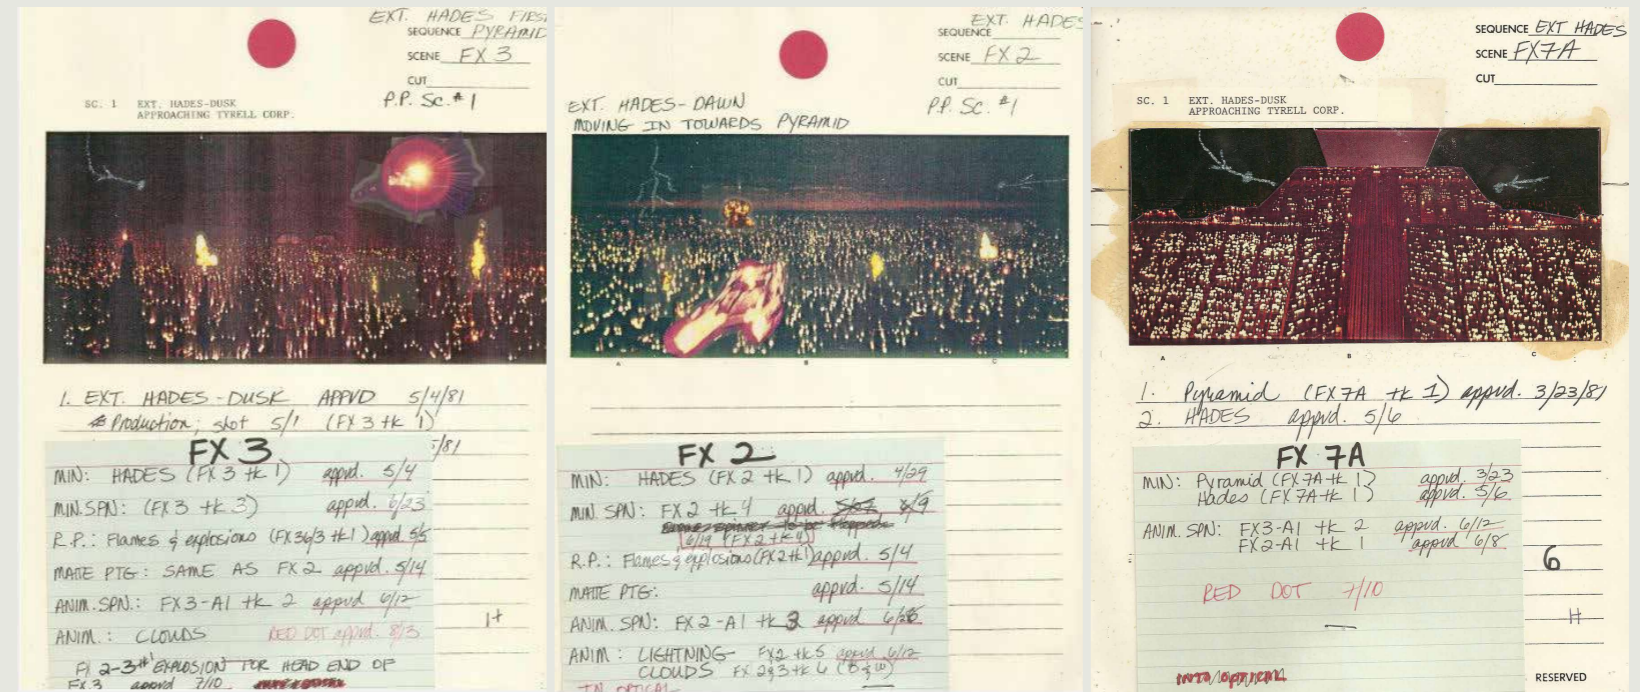 EXT. HADES FIRS
SEQUENCE PYRAMID
SCENE FX 3
CUT
P.P. Sc. #1
SC. 1 EXT. HADES-DUSK
APPROACHING TYRELL CORP.
1. EXT. HADES-DUSK APPVD 5/4/81
Production; shot 5/1 (FX 3 tk 1)
5/81
FX 3
MIN: HADES (FX 3 tk 1) appvd. 5/4
MIN. SPN: (FX 3 tk 3) appvd. 6/23
R.P.: Flames & explosions (FX36/3 tk1) appvd. 5/5
MATTE PTG: SAME AS FX 2 appvd. 5/14
ANIM. SPN: FX3-A1 tk 2 appvd 6/12
ANIM.: CLOUDS RED DOT appvd. 8/13
2-3 EXPLOSION FOR HEAD END OF
FX 3 appvd 7/10
H
EXT. HADES
SEQUENCE
SCENE FX 2
CUT
P.P. Sc. #1
EXT. HADES-DAWN
MOVING IN TOWARDS PYRAMID
A B C
FX 2
MIN: HADES (FX 2 tk 1) appvd. 4/29
MIN SPN: FX 2 tk 4 appvd.
6/19 (FX2 tk 4)
R.P.: Flames & explosions (FX2 tk1) appvd. 5/4
MATTE PTG: appvd. 5/14
ANIM. SPN: FX 2-A1 tk 3 appvd
ANIM: LIGHTNING- FX2 tk5 appvd 6/12
CLOUDS FX 2&3 tk 6 (B&W)
IN OPTICAL
SEQUENCE EXT HADES
SCENE FX7A
CUT
SC. 1 EXT. HADES-DUSK
APPROACHING TYRELL CORP.
A B C
1. Pyramid (FX7A tk 1) appvd. 3/23/81
2. HADES appvd. 5/6
FX 7A
MIN: Pyramid (FX7A tk 1) appvd. 3/23
Hades (FX7A tk 1) appvd. 5/6
ANIM. SPN: FX3-A1 tk 2 appvd. 6/12
FX2-A1 tk 1 appvd 6/8
RED DOT 7/10
6
H
RESERVED